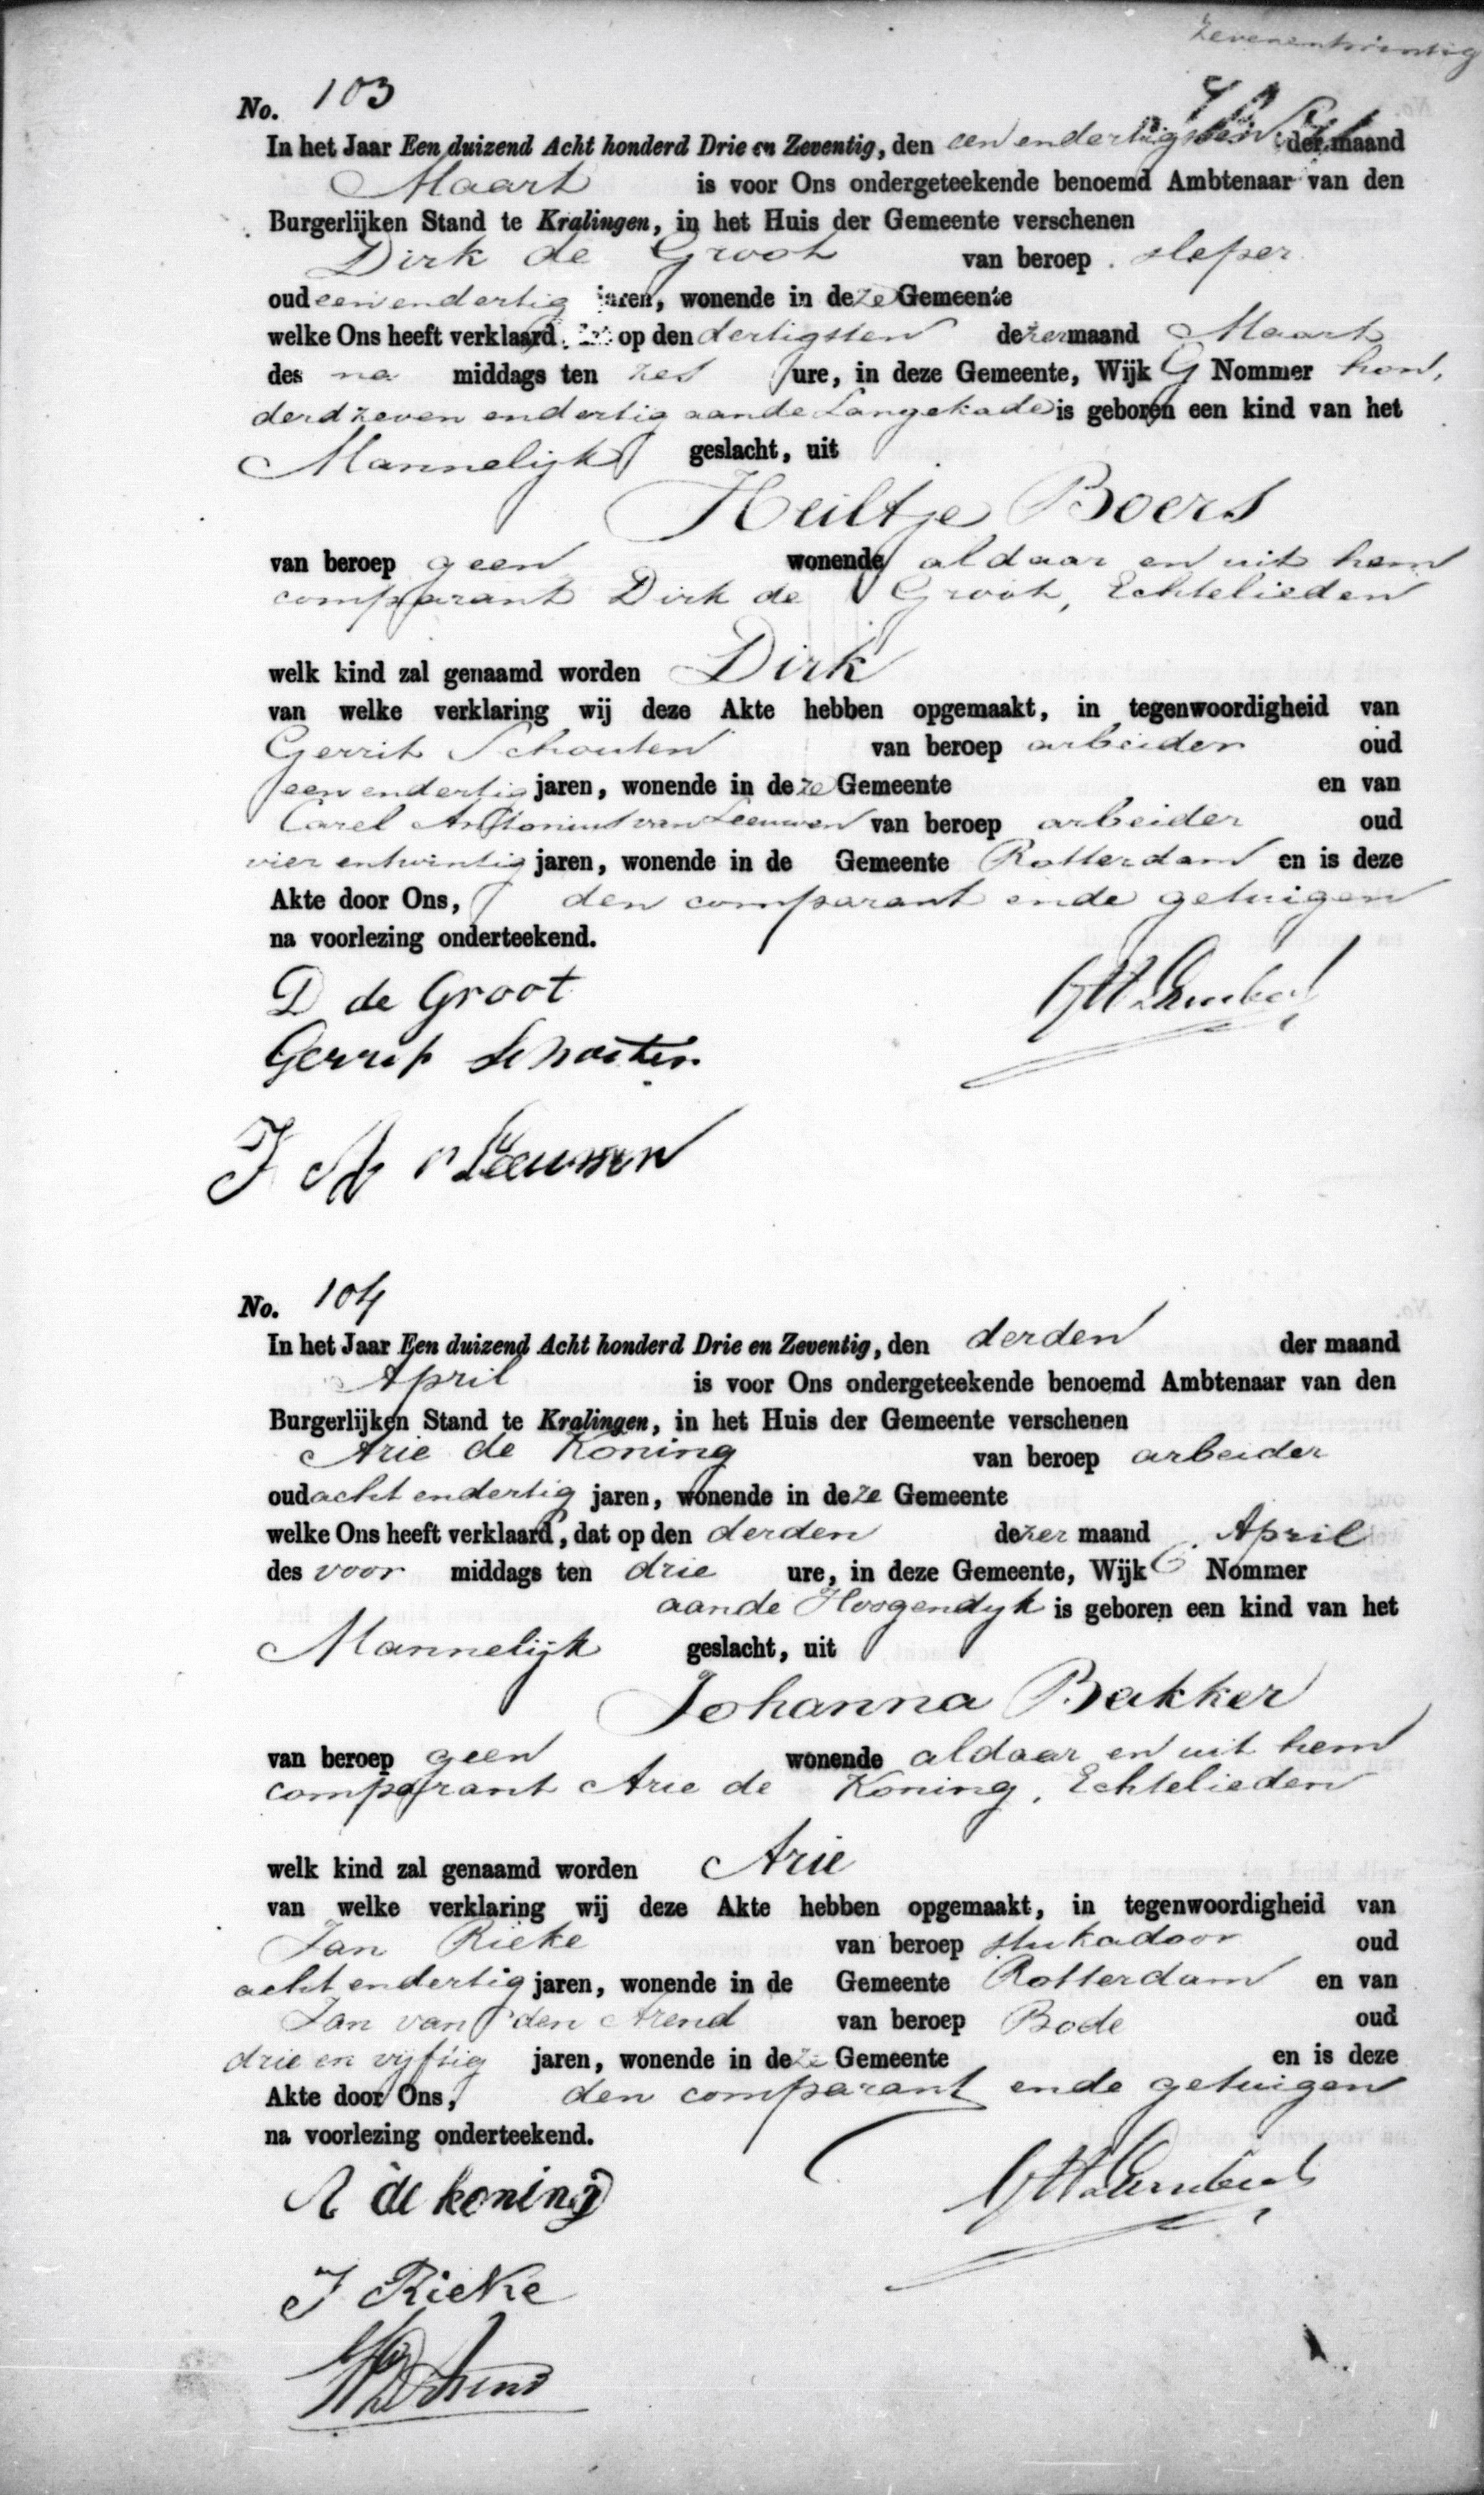 zevenentwintig
No. 103
In het Jaar Een duizend Acht honderd Drie en Zeventig, den een endertigsten der maand
Maart is voor Ons ondergeteekende benoemd Ambtenaar van den
Burgerlijken Stand te Kralingen, in het Huis der Gemeente verschenen
Dirk de Groot van beroep sleper
oud een endertig jaren, wonende in deze Gemeente
welke Ons heeft verklaard, dat op den dertigsten dezer maand Maart
des na middags ten zes ure, in deze Gemeente, Wijk G Nommer hon,
derd zeven endertig aande Langekade is geboren een kind van het
Mannelijk geslacht, uit
Heiltje Boers
van beroep geen wonende aldaar en uit hem
comparant Dirk de Groot, Echtelieden
welk kind zal genaamd worden Dirk
van welke verklaring wij deze Akte hebben opgemaakt, in tegenwoordigheid van
Gerrit Schouten van beroep arbeider oud
een endertig jaren, wonende in deze Gemeente en van
Carel Antonius van Leeuwen van beroep arbeider oud
vier entwintig jaren, wonende in de Gemeente Rotterdam en is deze
Akte door Ons, den comparant ende getuigen
na voorlezing onderteekend.
D de Groot
Gerrit Schouten
J A v Leeuwen
No. 104
In het Jaar Een duizend Acht honderd Drie en Zeventig, den derden der maand
April is voor Ons ondergeteekende benoemd Ambtenaar van den
Burgerlijken Stand te Kralingen, in het Huis der Gemeente verschenen
Arie de Koning van beroep arbeider
oud acht endertig jaren, wonende in deze Gemeente
welke Ons heeft verklaard, dat op den derden dezer maand April
des voor middags ten drie ure, in deze Gemeente, Wijk C Nommer
aande Hoogendyk is geboren een kind van het
Mannelijk geslacht, uit
Johanna Bakker
van beroep geen wonende aldaar en uit hem
comparant Arie de Koning, Echtelieden
welk kind zal genaamd worden Arie
van welke verklaring wij deze Akte hebben opgemaakt, in tegenwoordigheid van
Jan Rieke van beroep stukadoor oud
acht endertig jaren, wonende in de Gemeente Rotterdam en van
Jan van den Arend van beroep Bode oud
drie en vijftig jaren, wonende in deze Gemeente en is deze
Akte door Ons, den comparant ende getuigen
na voorlezing onderteekend.
A de koning
J Rieke
Arend